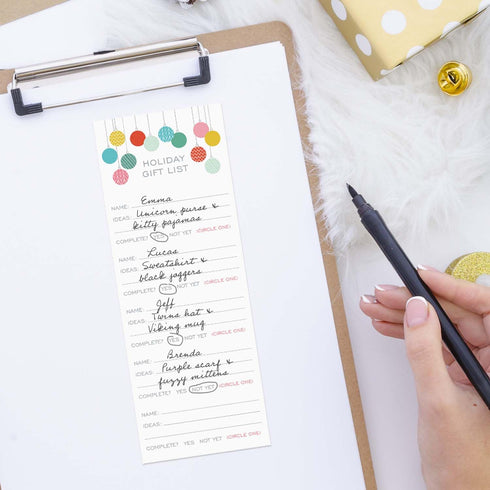 HOLIDAY
GIFT LIST
NAME: Emma
IDEAS: Unicorn purse &
kitty pajamas
COMPLETE? YES NOT YET (CIRCLE ONE)
NAME: Lucas
IDEAS: Sweatshirt &
black joggers
COMPLETE? YES NOT YET (CIRCLE ONE)
NAME: Jeff
IDEAS: Twins hat &
Viking mug
COMPLETE? YES NOT YET (CIRCLE ONE)
NAME: Brenda
IDEAS: Purple scarf &
fuzzy mittens
COMPLETE? YES NOT YET (CIRCLE ONE)
NAME:
IDEAS:
COMPLETE? YES NOT YET (CIRCLE ONE)